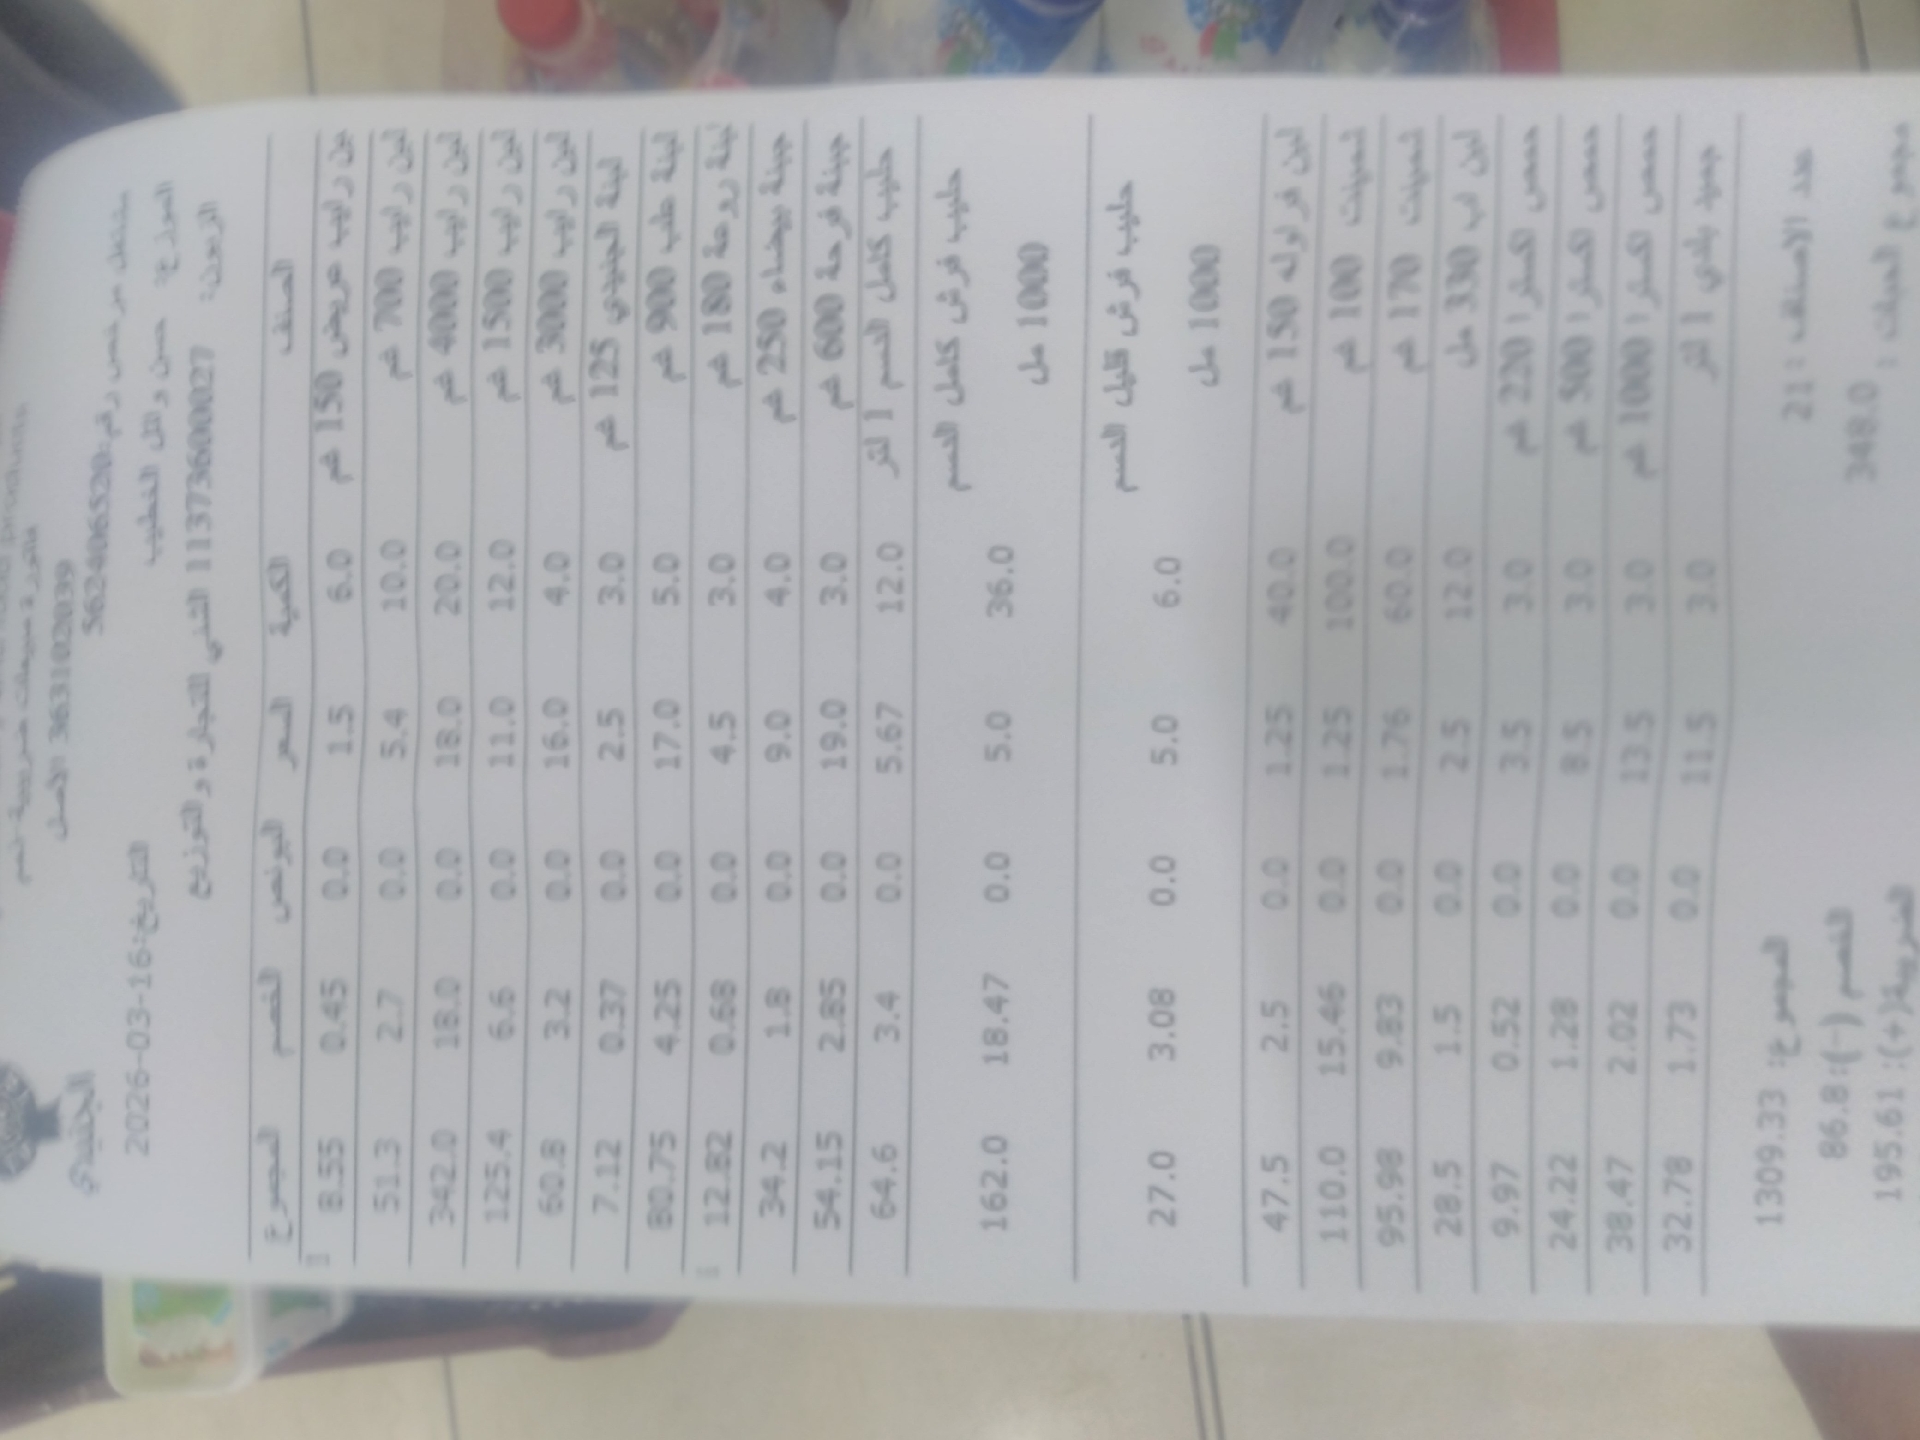 الجنيدي
فاتورة مبيعات ضريبية قسم
363102039 الاصل
مشتغل مرخص رقم:562406520
التاريخ:2026-03-16
الموزع: حسن وائل الخطيب
الزبون: 1137360027 الثني للتجارة و التوزيع
الصنف الكمية السعر البونص الخصم المجموع
لبن رايب عريض 150 غم 6.0 1.5 0.0 0.45 8.55
لبن رايب 700 غم 10.0 5.4 0.0 2.7 51.3
لبن رايب 4000 غم 20.0 18.0 0.0 18.0 342.0
لبن رايب 1500 غم 12.0 11.0 0.0 6.6 125.4
لبن رايب 3000 غم 4.0 16.0 0.0 3.2 60.8
لبنة الجنيدي 125 غم 3.0 2.5 0.0 0.37 7.12
لبنة علب 900 غم 5.0 17.0 0.0 4.25 80.75
لبنة روحة 180 غم 3.0 4.5 0.0 0.68 12.82
جبنة بيضاء 250 غم 4.0 9.0 0.0 1.8 34.2
جبنة فرحة 600 غم 3.0 19.0 0.0 2.85 54.15
حليب كامل الدسم 1 لتر 12.0 5.67 0.0 3.4 64.6
حليب فرش كامل الدسم
1000 مل 36.0 5.0 0.0 18.47 162.0
حليب فرش قليل الدسم
1000 مل 6.0 5.0 0.0 3.08 27.0
لبن فراوله 150 غم 40.0 1.25 0.0 2.5 47.5
شمينت 100 غم 100.0 1.25 0.0 15.46 110.0
شمينت 170 غم 60.0 1.76 0.0 9.83 95.98
لبن اب 330 مل 12.0 2.5 0.0 1.5 28.5
حمص اكسترا 220 غم 3.0 3.5 0.0 0.52 9.97
حمص اكسترا 500 غم 3.0 8.5 0.0 1.28 24.22
حمص اكسترا 1000 غم 3.0 13.5 0.0 2.02 38.47
جميد بلدي 1 لتر 3.0 11.5 0.0 1.73 32.78
عدد الاصناف: 21 المجموع: 1309.33
الخصم (-):86.8
مجموع الحبات: 348.0 الضريبة(+): 195.61